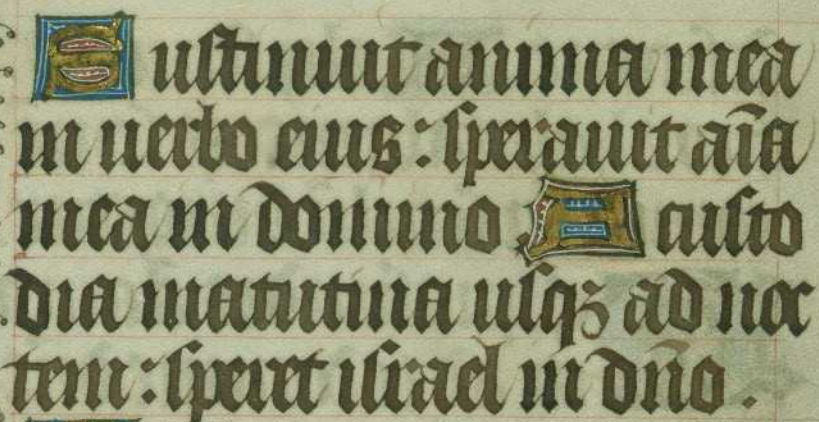 Sustinuit anima mea
in uerbo eius: sperauit aīa
mea in domino. A custo
dia matutina usqꝫ ad noc
tem: speret israel in dn̄o.